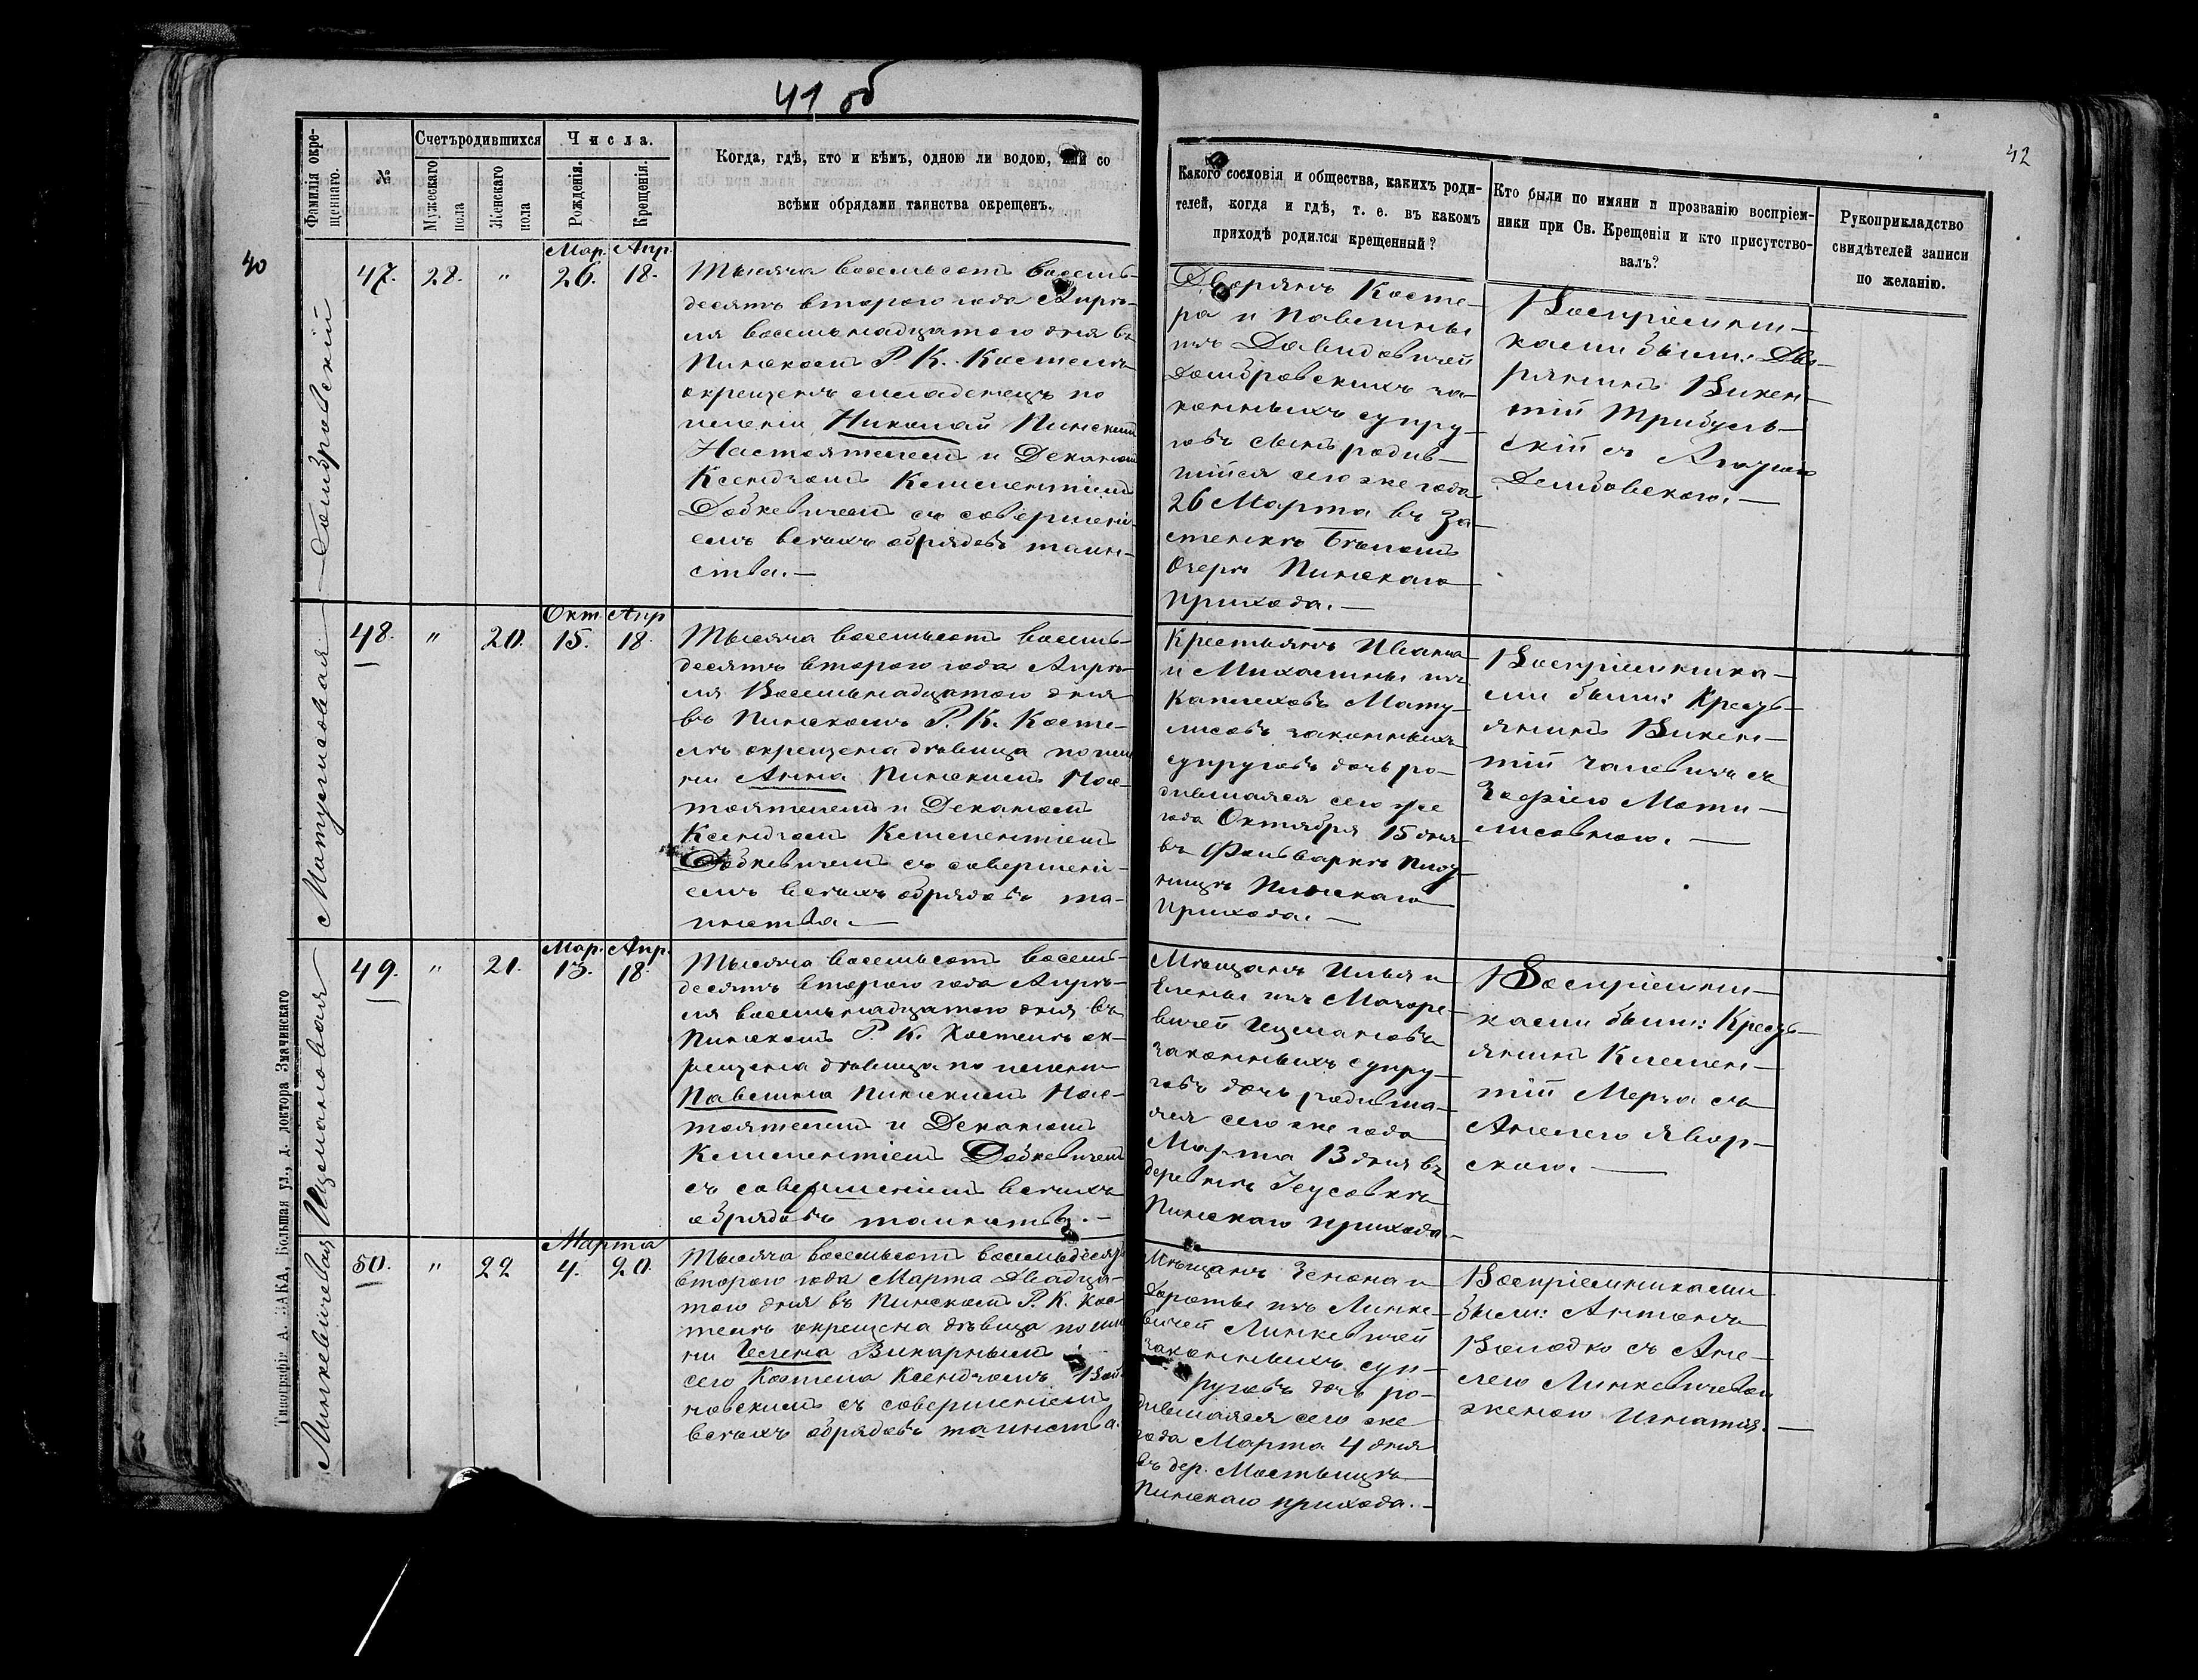 41 об
42
40
Фамилія окре-
щеннаго.
№
Счетъ родившихся
Мужескаго
пола
Женскаго
пола
Числа.
Рожденія.
Крещенія.
Когда, гдѣ, кто и кѣмъ, одною ли водою, или со
всѣми обрядами таинства окрещенъ.
Какого сословія и общества, какихъ роди-
телей, когда и гдѣ, т. е. въ какомъ
приходѣ родился крещенный?
Кто были по имяни и прозванію воспріем-
ники при Св. Крещеніи и кто присутство-
валъ?
Рукоприкладство
свидѣтелей записи
по желанію.
Домбровскій
47. 28. "
Мар. Апр.
26. 18.
Тысяча восемьсотъ восемь-
десятъ второго года Апрѣ-
ля восемьнадцатого дня въ
Пинскомъ Р. К. Костелѣ
окрещенъ младенецъ по
имени Николай Пинскимъ
Настоятелемъ и Деканомъ
Ксендзомъ Клементіемъ
Добкевичемъ съ совершені-
емъ всѣхъ обрядовъ таин-
ства.—
Дворянъ Косте-
ра и Павелины
изъ Давидовичей
Домбровскихъ за-
конныхъ супру-
говъ сынъ родив-
шійся сего же года
26 Марта въ За-
стенкѣ Бѣломъ
Озерѣ Пинскаго
прихода.—
Воспріемни-
ками были: Дво-
рянинъ Викен-
тій
скій съ
Дембовскою.—
Матулисовая
48. " 20.
Окт Апр
15. 18.
Тысяча восемьсотъ восемь-
десятъ второго года Апрѣ-
ля Восемьнадцатого дня
въ Пинскомъ Р. К. Косте-
лѣ окрещена дѣвица по име-
ни Анна Пинскимъ Нас-
тоятелемъ и Деканомъ
Ксендзомъ Клементіемъ
Добкевичемъ съ совершені-
емъ всѣхъ обрядовъ та-
инства.—
Крестьянъ Ивана
и Михалины изъ
Матy-
лисовъ законныхъ
супруговъ дочь ро-
дившаяся сего же
года Октября 15 дня
въ Фольваркѣ
Пинскаго
прихода.—
Воспріемника-
ми были: Кресть-
янинъ Викен-
тій съ
Зофіею Мати-
лисовною.—
Ицмановая
49. " 21.
Мар. Апр.
13. 18.
Тысяча восемьсотъ восемь-
десятъ второго года Апрѣ-
ля восемьнадцатого дня въ
Пинскомъ Р. К. Костелѣ ок-
рещена дѣвица по имени
Павелина Пинскимъ Нас-
тоятелемъ и Деканомъ
Клементіемъ Добкевичемъ
съ совершеніемъ всѣхъ
обрядовъ таинства.—
Мѣщанъ Ильи и
Елены изъ Мазоре-
вичей Ицмановъ
законныхъ супру-
говъ дочь родивша-
яся сего же года
Марта 13 дня въ
деревнѣ
Пинскаго прихода.—
Воспріемни-
ками были: Кресть-
янинъ Клемен-
тій Мерза съ
Анелею Явор-
скою.—
Линкевичевая
50. " 22
Марта
4. 20.
Тысяча восемьсотъ восемьдесятъ
второго года Марта Двадца-
того дня въ Пинскомъ Р. К. Кос-
телѣ окрещена дѣвица по име-
ни Гелена Викарнымъ
сего Костела Ксендзомъ Вой-
съ совершеніемъ
всѣхъ обрядовъ таинства.
Мѣщанъ Зенона и
Доротьи изъ Линке-
вичей Линкевичей
законныхъ суп-
руговъ дочь ро-
дившаяся сего же
года Марта 4 дня
въ дер. Мостыщѣ
Пинскаго прихода.—
Воспріемниками
были: Антонъ
Володко съ Ане-
лею Линкевичевою
женою Игнатія.—
Типографія А. ЗАКА, Большая ул., д. доктора Змачинскаго